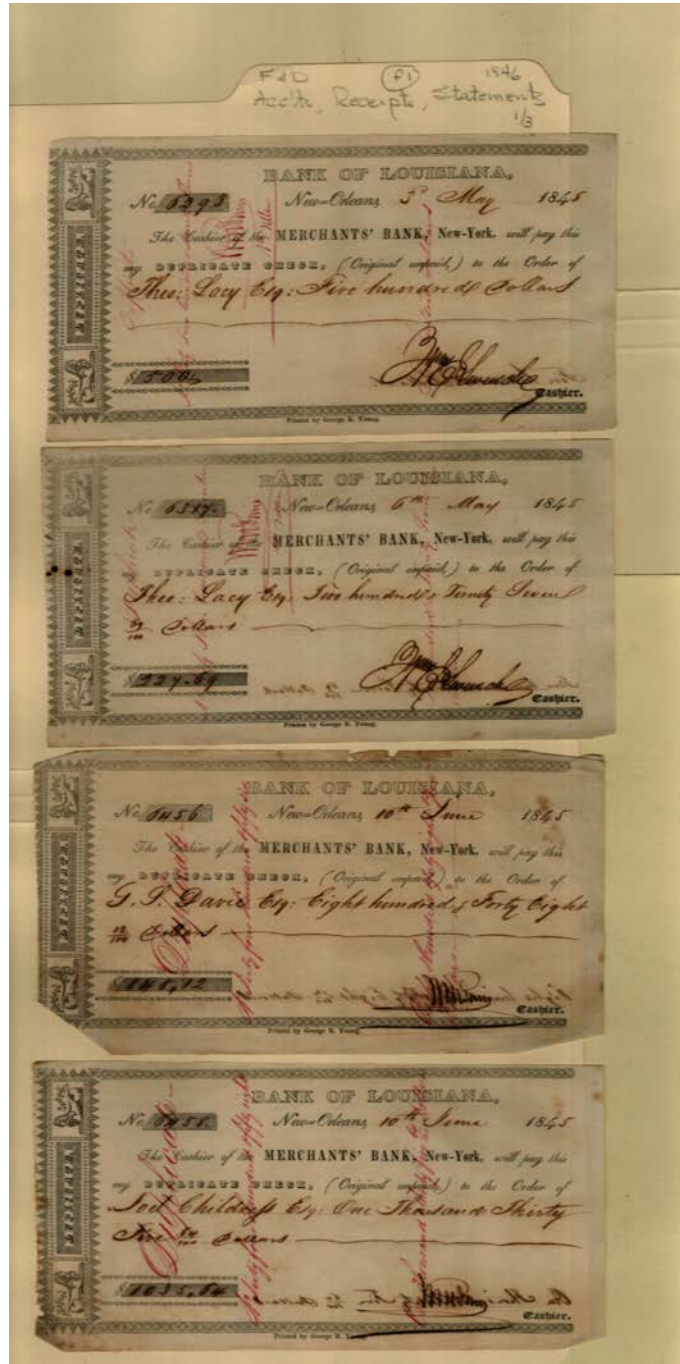 F&D f1 1846
Acc'ts, Receipts, Statements
1/3
BANK OF LOUISIANA,
No 6293 New-Orleans, 3d May 1845
The Cashier of the MERCHANTS' BANK, New-York. will pay this
my DUPLICATE CHECK, (Original unpaid,) to the Order of
Theo: Lacy Esq: Five hundred Dollars
$500
Cashier.
Printed by George R. Young.
DUPLICATE.
BANK OF LOUISIANA,
No 6317. New-Orleans, 6th May 1845
The Cashier of the MERCHANTS' BANK, New-York. will pay this
my DUPLICATE CHECK, (Original unpaid,) to the Order of
Theo: Lacy Esq: Two hundred & Twenty Seven
69/100 Dollars
$227.69
Cashier.
Printed by George R. Young.
DUPLICATE.
BANK OF LOUISIANA,
No 6456 New-Orleans, 10th June 1845
The Cashier of the MERCHANTS' BANK, New-York. will pay this
my DUPLICATE CHECK, (Original unpaid,) to the Order of
G. S. Davie Esq: Eight hundred & Forty Eight
12/100 Dollars
$848,12
Duplicate
Cashier.
Printed by George R. Young.
DUPLICATE.
BANK OF LOUISIANA,
No 6458. New-Orleans, 10th June 1845
The Cashier of the MERCHANTS' BANK, New-York. will pay this
my DUPLICATE CHECK, (Original unpaid,) to the Order of
Joel Childress Esq: One Thousand Thirty
Five 64/100 Dollars
$1035,64
Duplicate
Cashier.
Printed by George R. Young.
DUPLICATE.